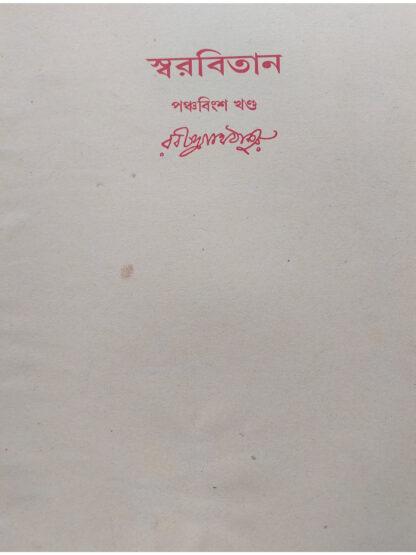 স্বরবিতান
পঞ্চবিংশ খণ্ড
রবীন্দ্রনাথ ঠাকুর